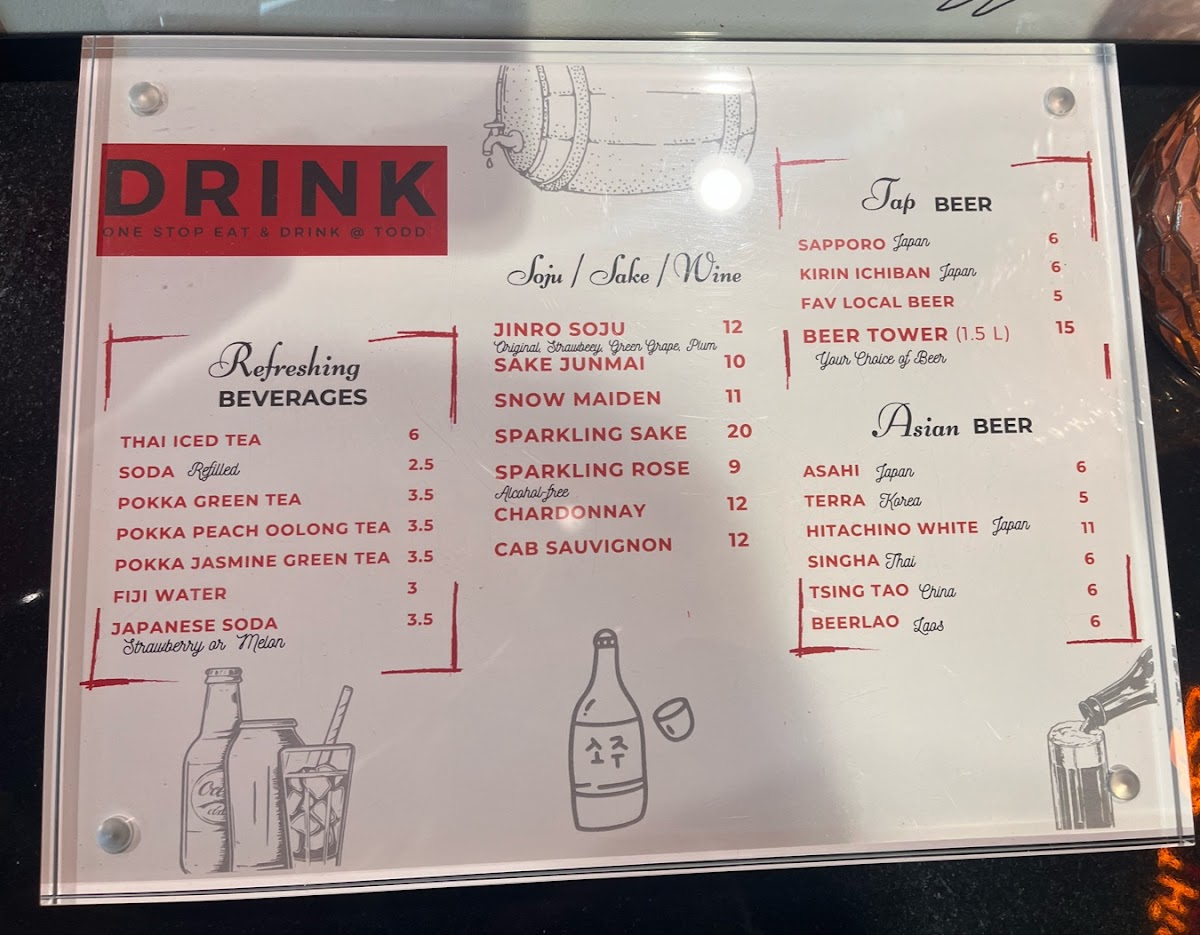 DRINK
ONE STOP EAT & DRINK @ TODD
Refreshing
BEVERAGES
THAI ICED TEA 6
SODA Refilled 2.5
POKKA GREEN TEA 3.5
POKKA PEACH OOLONG TEA 3.5
POKKA JASMINE GREEN TEA 3.5
FIJI WATER 3
JAPANESE SODA 3.5
Strawberry or Melon
Soju / Sake / Wine
JINRO SOJU 12
Original, Strawbeey, Green Grape, Plum
SAKE JUNMAI 10
SNOW MAIDEN 11
SPARKLING SAKE 20
SPARKLING ROSE 9
Alcohol-free
CHARDONNAY 12
CAB SAUVIGNON 12
소주
Tap BEER
SAPPORO Japan 6
KIRIN ICHIBAN Japan 6
FAV LOCAL BEER 5
BEER TOWER (1.5 L) 15
Your Choice of Beer
Asian BEER
ASAHI Japan 6
TERRA Korea 5
HITACHINO WHITE Japan 11
SINGHA Thai 6
TSING TAO China 6
BEERLAO Laos 6